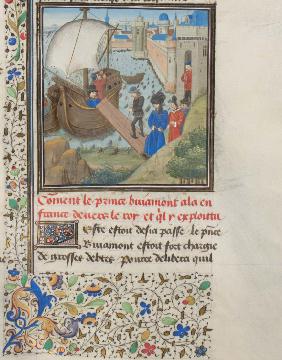 Coment le prince buiamont ala en
france deuers le roy et ql y exploitu
Este estoit desia passe le price
Buiamont estoit fort charge
de grosses debtes pource delibera quil